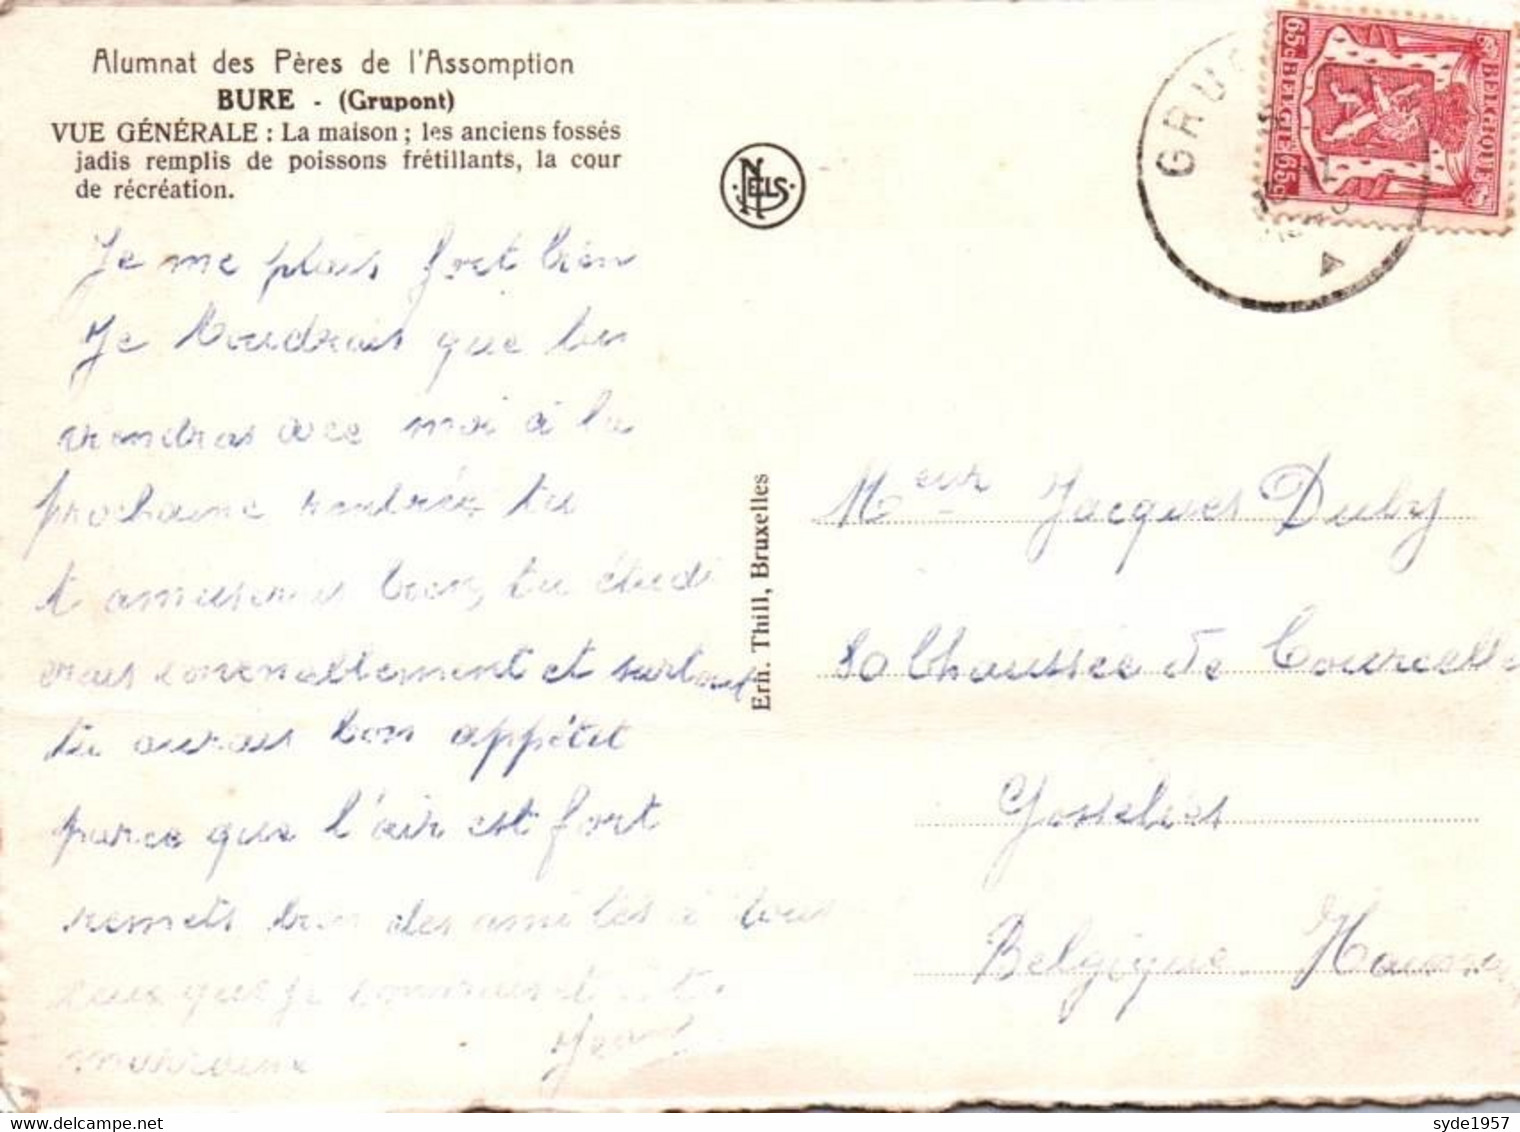 Alumnat des Pères de l'Assomption
BURE - (Grupont)
VUE GÉNÉRALE : La maison ; les anciens fossés
jadis remplis de poissons frétillants, la cour
de récréation.
NELS
GRU
65c BELGIE 65c
BELGIQUE
Je me plais fort bien
Je voudrais que tu
viendras avec moi à la
prochaine rentrée, tu
t amuserais bien, tu étudi
erais convenablement et surtout
tu aurais bon appétit
parce que l'air est fort
remets bien des amitiés à tous
ceux que je connais et à ta
marraine Jean
Erh. Thill, Bruxelles
Meur Jacques Duby
80 Chaussée de Courcelle
Gosselies
Belgique
syde1957